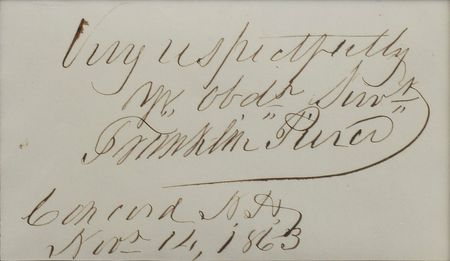 Very respectfully
Yr. obdt Servt
Franklin Pierce
Concord N.H.
Novr 14, 1863